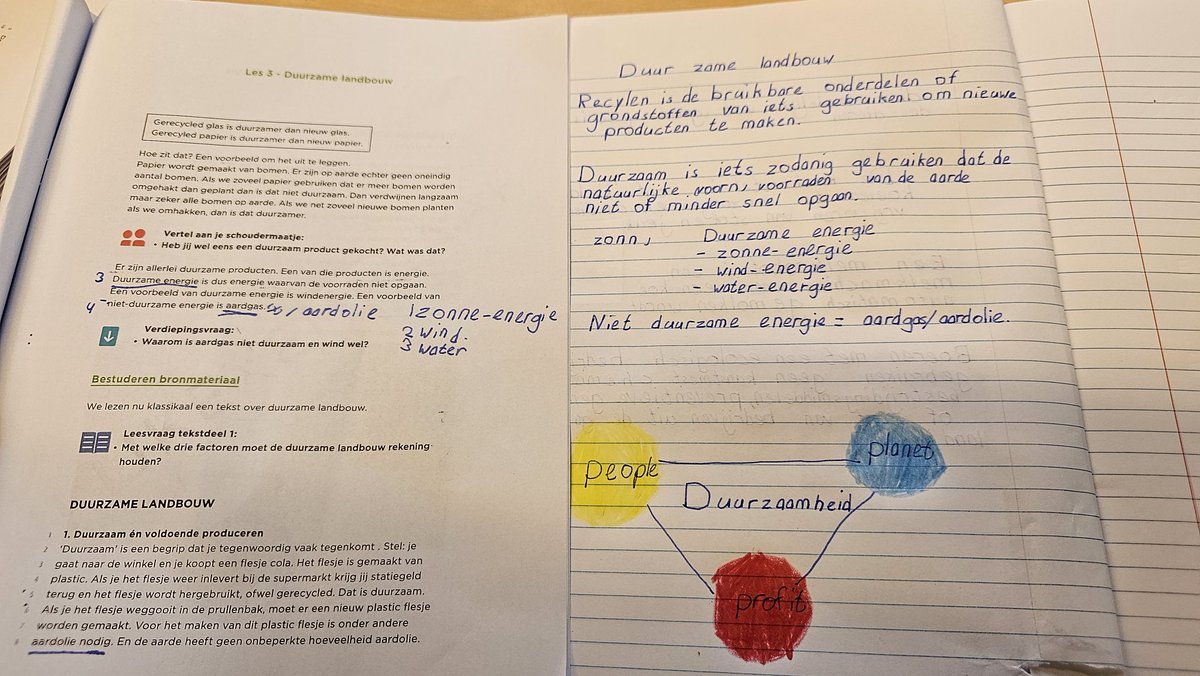 Les 3 - Duurzame landbouw
Gerecycled glas is duurzamer dan nieuw glas.
Gerecyled papier is duurzamer dan nieuw papier.
Hoe zit dat? Een voorbeeld om het uit te leggen.
Papier wordt gemaakt van bomen. Er zijn op aarde echter geen oneindig
aantal bomen. Als we zoveel papier gebruiken dat er meer bomen worden
omgehakt dan geplant dan is dat niet duurzaam. Dan verdwijnen langzaam
maar zeker alle bomen op aarde. Als we net zoveel nieuwe bomen planten
als we omhakken, dan is dat duurzamer.
Vertel aan je schoudermaatje:
• Heb jij wel eens een duurzaam product gekocht? Wat was dat?
Er zijn allerlei duurzame producten. Een van die producten is energie.
3 Duurzame energie is dus energie waarvan de voorraden niet opgaan.
Een voorbeeld van duurzame energie is windenergie. Een voorbeeld van
4 niet-duurzame energie is aardgas. / aardolie
1 zonne-energie
2 wind.
3 water
Verdiepingsvraag:
• Waarom is aardgas niet duurzaam en wind wel?
Bestuderen bronmateriaal
We lezen nu klassikaal een tekst over duurzame landbouw.
Leesvraag tekstdeel 1:
• Met welke drie factoren moet de duurzame landbouw rekening
houden?
DUURZAME LANDBOUW
1 1. Duurzaam én voldoende produceren
2 'Duurzaam' is een begrip dat je tegenwoordig vaak tegenkomt . Stel: je
3 gaat naar de winkel en je koopt een flesje cola. Het flesje is gemaakt van
4 plastic. Als je het flesje weer inlevert bij de supermarkt krijg jij statiegeld
5 terug en het flesje wordt hergebruikt, ofwel gerecycled. Dat is duurzaam.
6 Als je het flesje weggooit in de prullenbak, moet er een nieuw plastic flesje
7 worden gemaakt. Voor het maken van dit plastic flesje is onder andere
8 aardolie nodig. En de aarde heeft geen onbeperkte hoeveelheid aardolie.
Duur zame landbouw
Recylen is de bruikbare onderdelen of
grondstoffen van iets gebruiken om nieuwe
producten te maken.
Duurzaam is iets zodanig gebruiken dat de
natuurlijke voorn, voorraden van de aarde
niet of minder snel opgaan.
zonn, Duurzame energie
- zonne-energie
- wind-energie
- water-energie
Niet duurzame energie = aardgas/aardolie.
people
planet
Duurzaamheid
profit